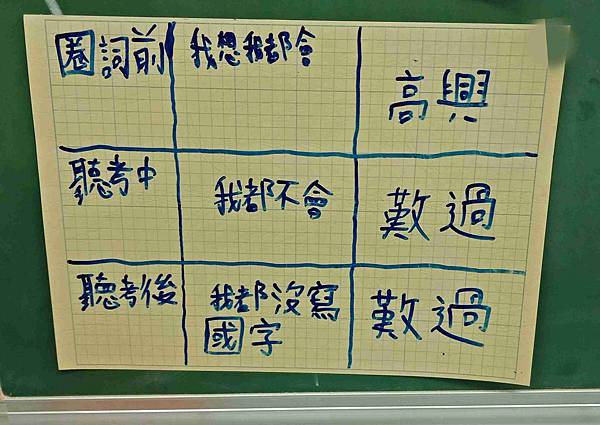 圈詞前
我想我都會
高興
聽考中
我都不會
難過
聽考後
我都沒寫
國字
難過